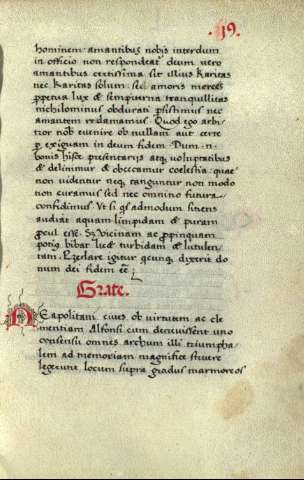 19.
hominem amantibus nobis interdum
in officio non respondeat: deum vero
amantibus certissima sit illius karitas
nec karitas solum: sed amoris merces
ꝑpetua lux & sempiterna tranquillitas
nichilominus obdurati pessimus nec
amantem redamamus. Quod ego arbi
tror nob evenire ob nullam aut certe
ꝑ exiguam in deum fidem. Dum .n.
bonis hisce presentariis atq, voluptatibus
& delinimur & obeccamur coelestia: quae
non videntur neq, tanguntur non modo
non curamus sed nec omnino futura
confidimus. Ut si qs admodum sitiens
audiat aquam limpidam & puram
ꝓcul esse. Sz vicinam ac ꝓpinquam
potiq bibat licet turbidam & lutulen
tam. Preclare igitur qcunq, dixerit do
num dei fidem eē;
Grate.
NEapolitani cives ob virtutem ac cle
mentiam Alfonsi cum decrevissent uno
consensu omnes archum illi triumpha
lem ad memoriam magnifice struere
legerunt locum supra gradus marmoreos